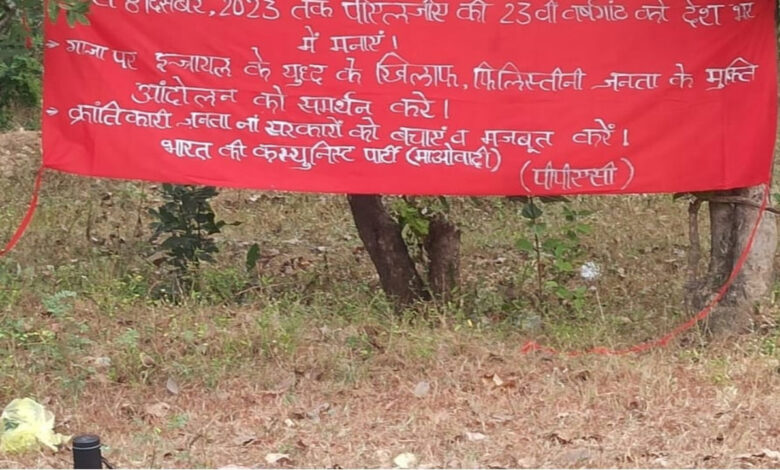 8 दिसंबर, 2023 तक पीएलजीए की 23 वीं वर्षगांठ को देश भर
में मनाएं।
→ गाजा पर इजरायल के युद्ध के खिलाफ, फिलिस्तीनी जनता के मुक्ति
आंदोलन को समर्थन करें।
→ क्रांतिकारी जनता नां सरकारों को बचाएं व मजबूत करें।
भारत की कम्युनिस्ट पार्टी (माओवादी)
(पीपीएससी)